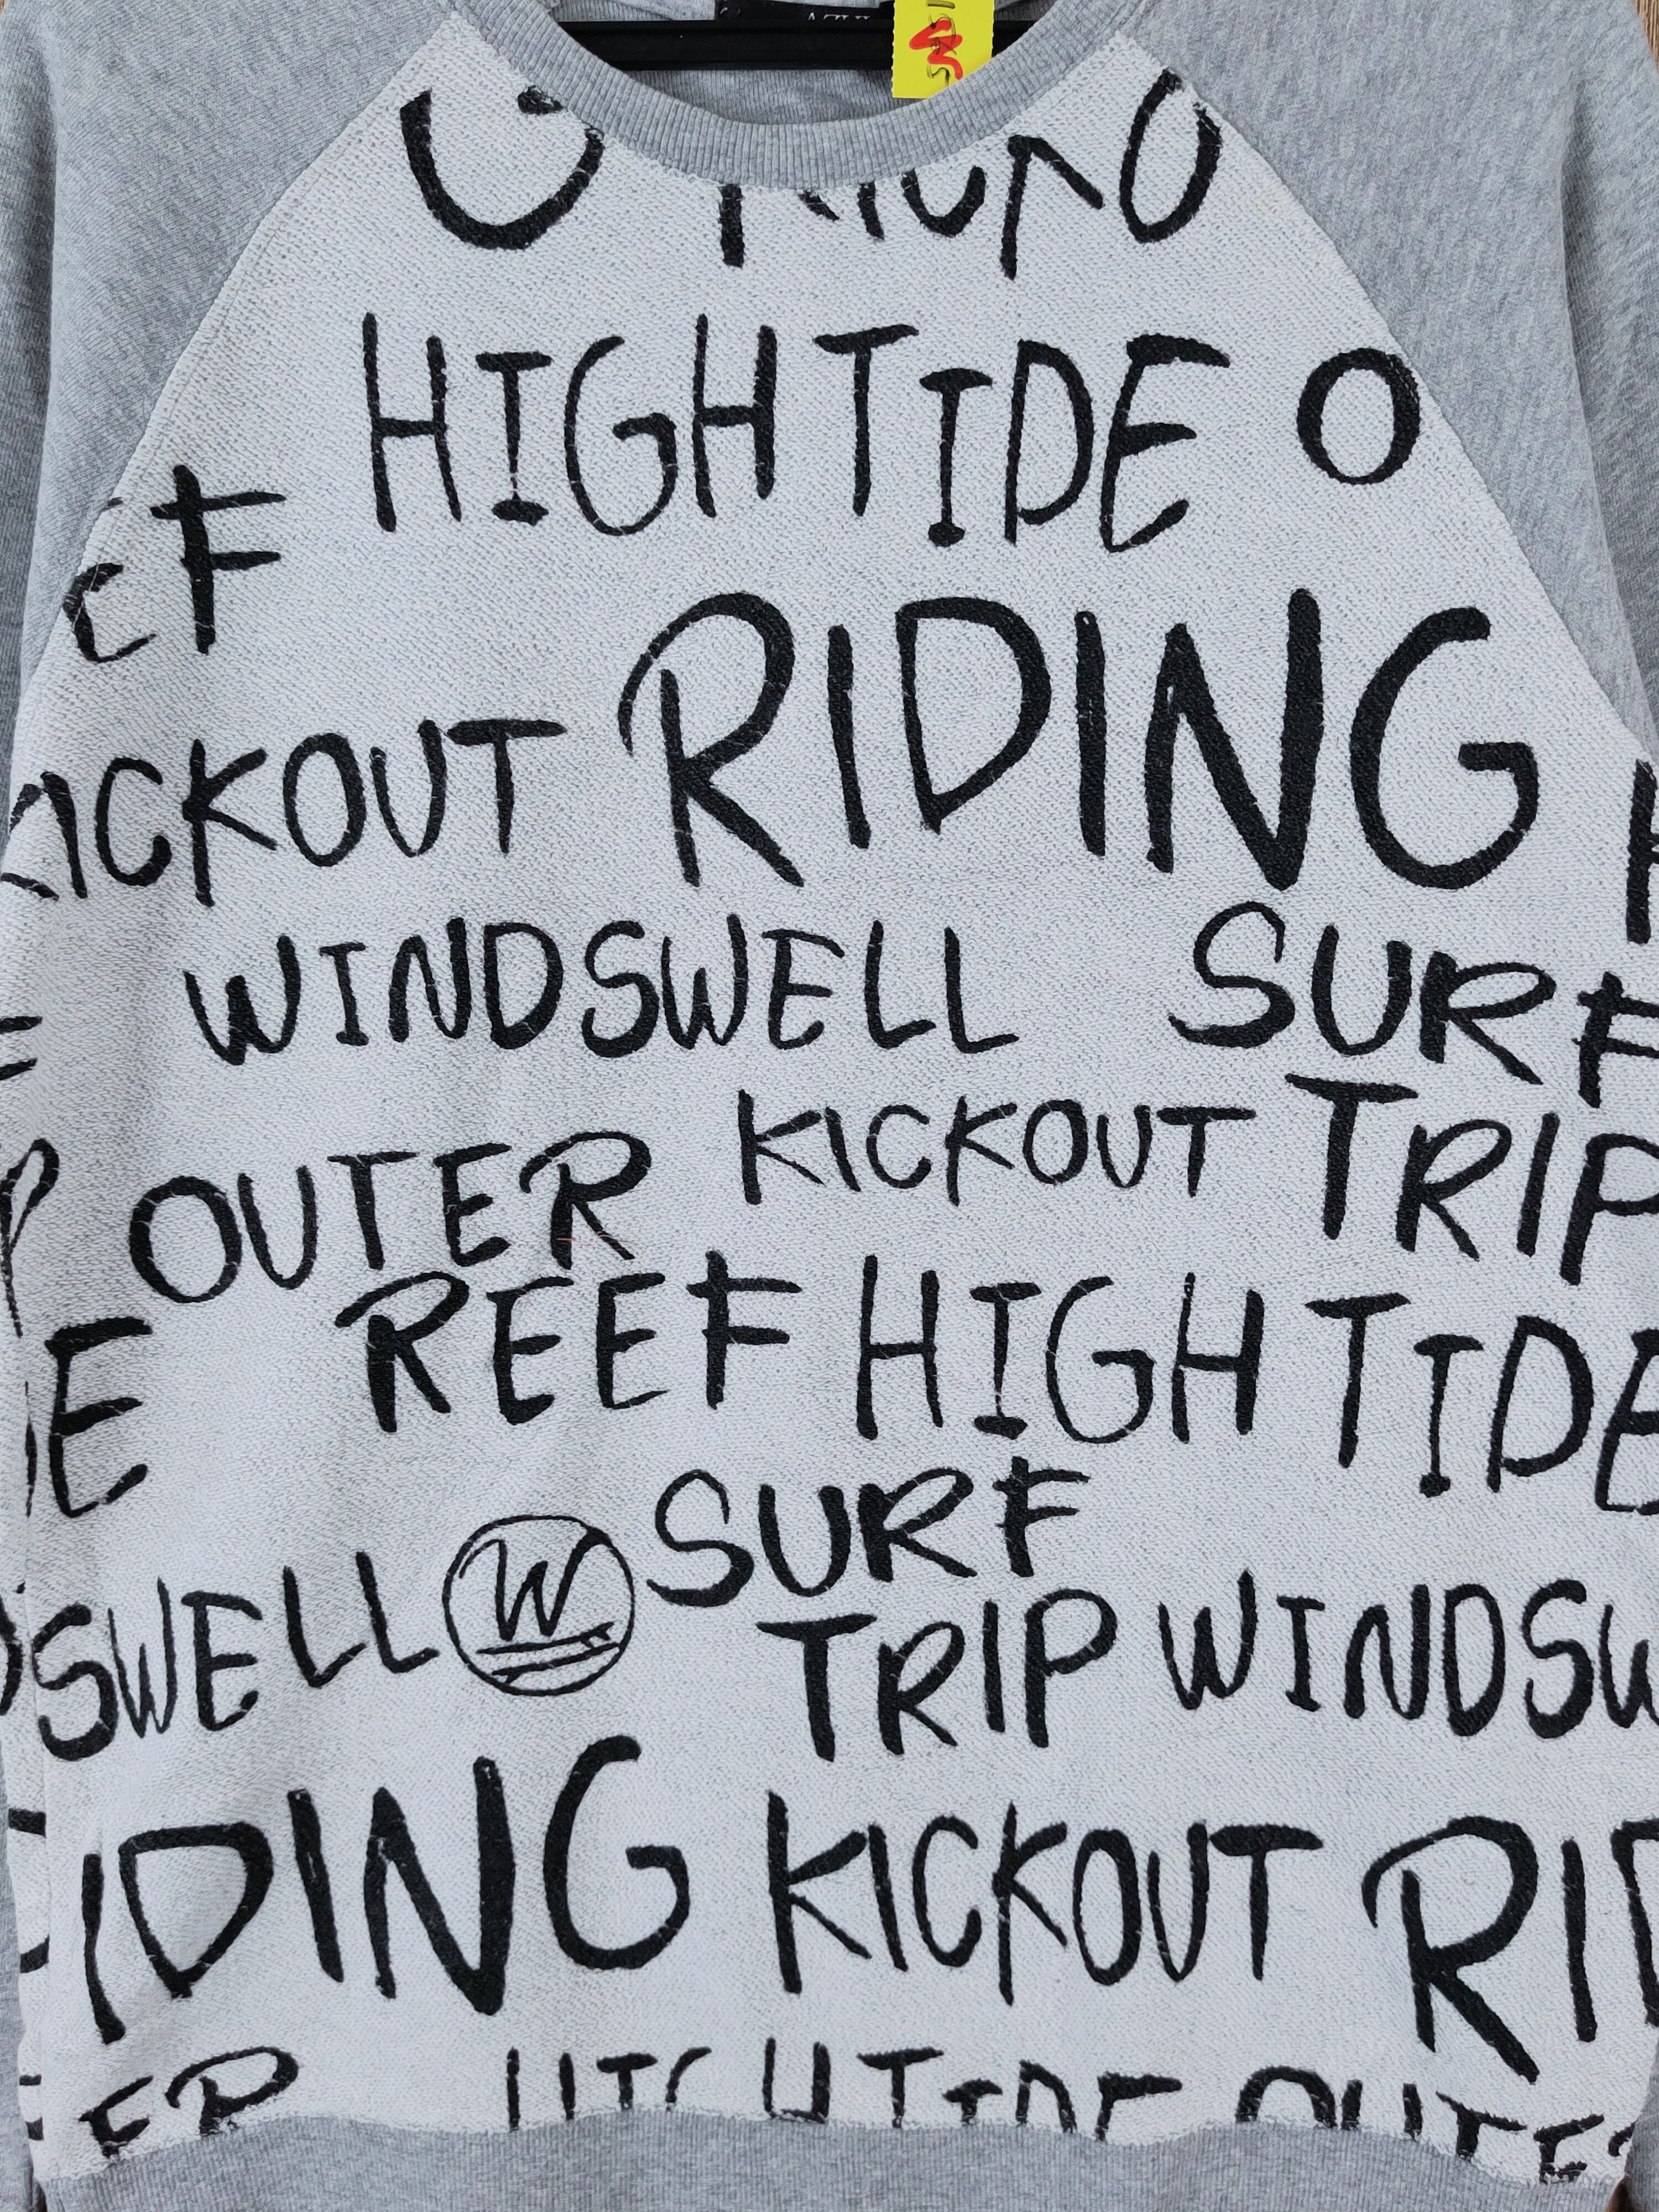 HIGH TIDE O
EF
KICKOUT RIDING
WINDSWELL SURF
OUTER KICKOUT TRIP
REEF HIGH TIDE
E
SURF
SWELL W
TRIP WINDSW
IDING KICKOUT RID
ER HIGH TIDE OUTER